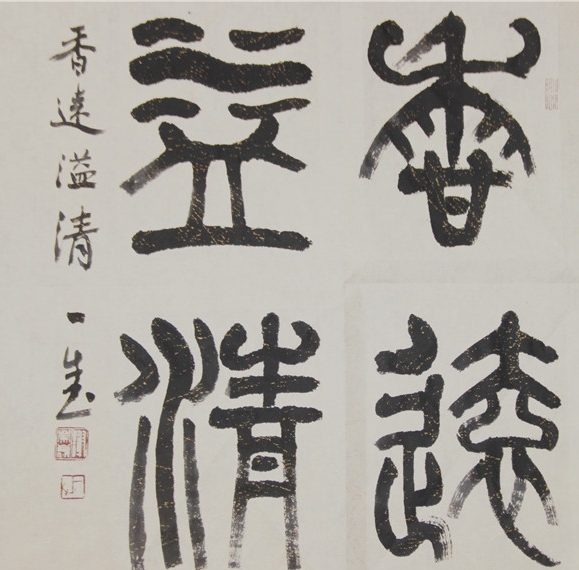 香遠
益清
香遠溢清 一